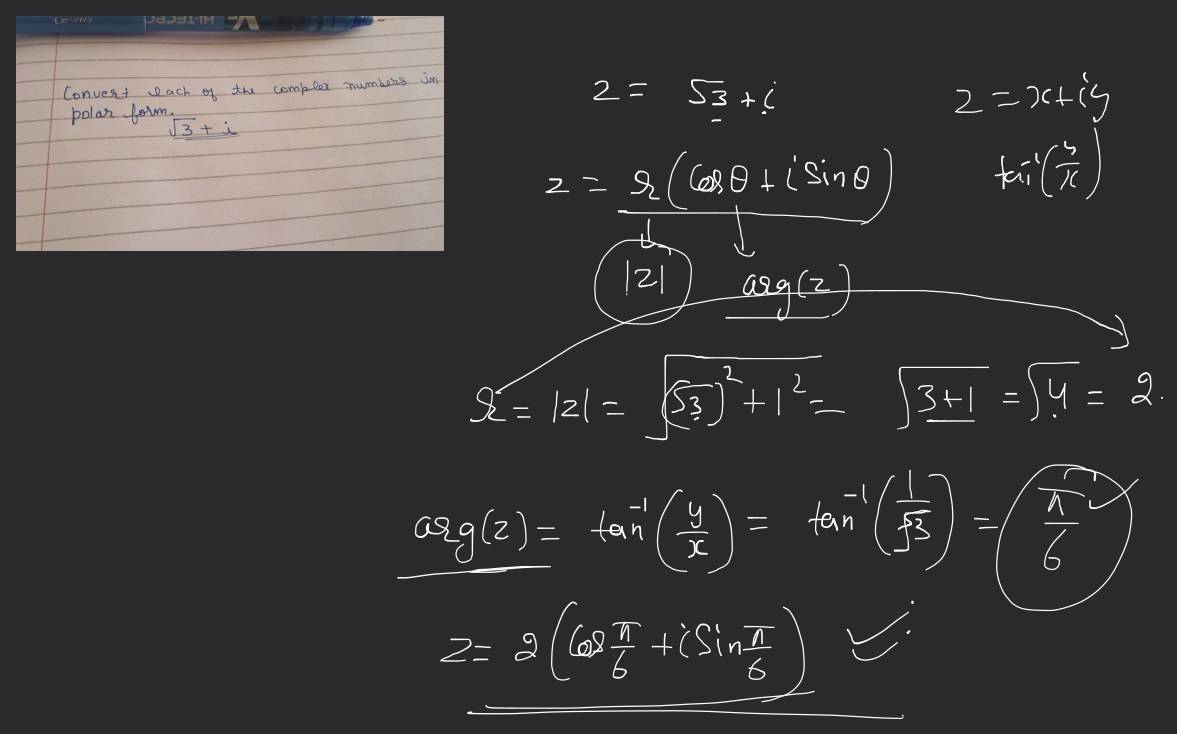 HI-TECPO
Convert each of the complex numbers in
polar form.
√3 + i
z = √3 + i
z = x + iy
z = r(Cosθ + i Sinθ)
tan⁻¹(y/x)
|z| arg(z)
r = |z| = √((√3)² + 1²) = √(3+1) = √4 = 2.
arg(z) = tan⁻¹(y/x) = tan⁻¹(1/√3) = π/6
z = 2(Cos π/6 + i Sin π/6)